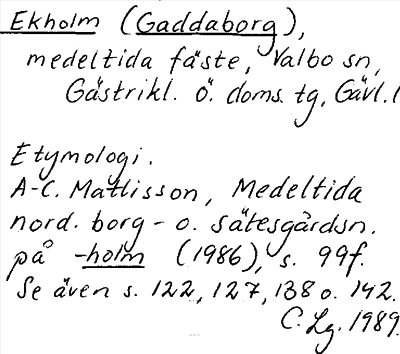 Ekholm (Gaddaborg),
medeltida fäste, Valbo sn,
Gästrikl. ö. doms. tg, Gävl. l
Etymologi.
A-C. Mattisson, Medeltida
nord. borg- o. sätesgårdsn.
på -holm (1986), s. 99f.
Se även s. 122, 127, 138 o. 142.
C. Lg. 1989.